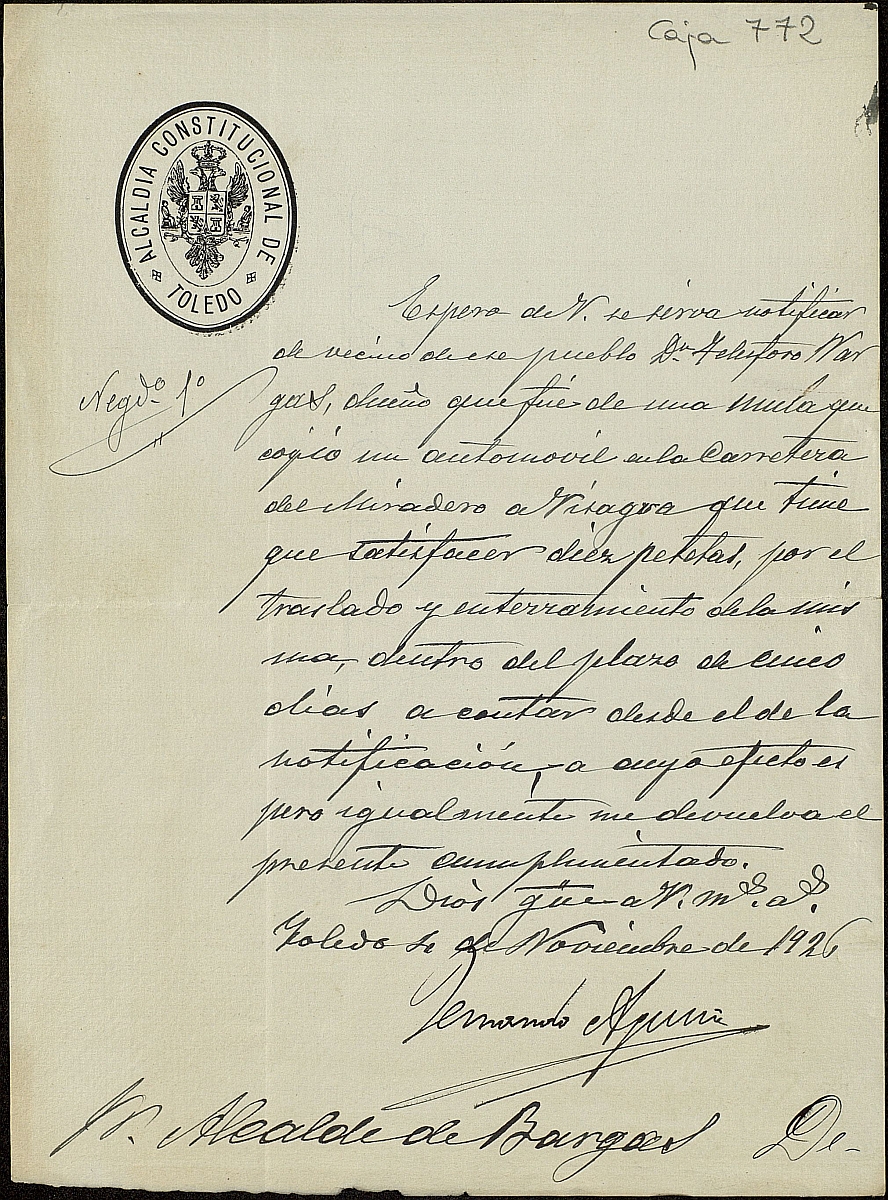 Caja 772
ALCALDIA CONSTITUCIONAL DE TOLEDO
Negdº 1º
Espero de V. se sirva notificar
de vecino de ese pueblo Dn. Telesforo Var
gas, dueño que fué de una mula que
cogió un automovil en la Carretera
del Miradero a Visagra que tiene
que satisfacer diez pesetas, por el
traslado y enterramiento de la mis
ma, dentro del plazo de cinco
dias a contar desde el de la
notificación, a cuyo efecto es
pero igualmente me devuelva el
presente cumplimentado.
Dios güe a V. ms. as.
Toledo de Noviembre de 1926
Fernando Aguirre
Sr. Alcalde de Bargas De-